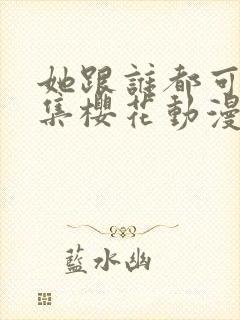 她跟誰都可
集櫻花動漫
藍水幽